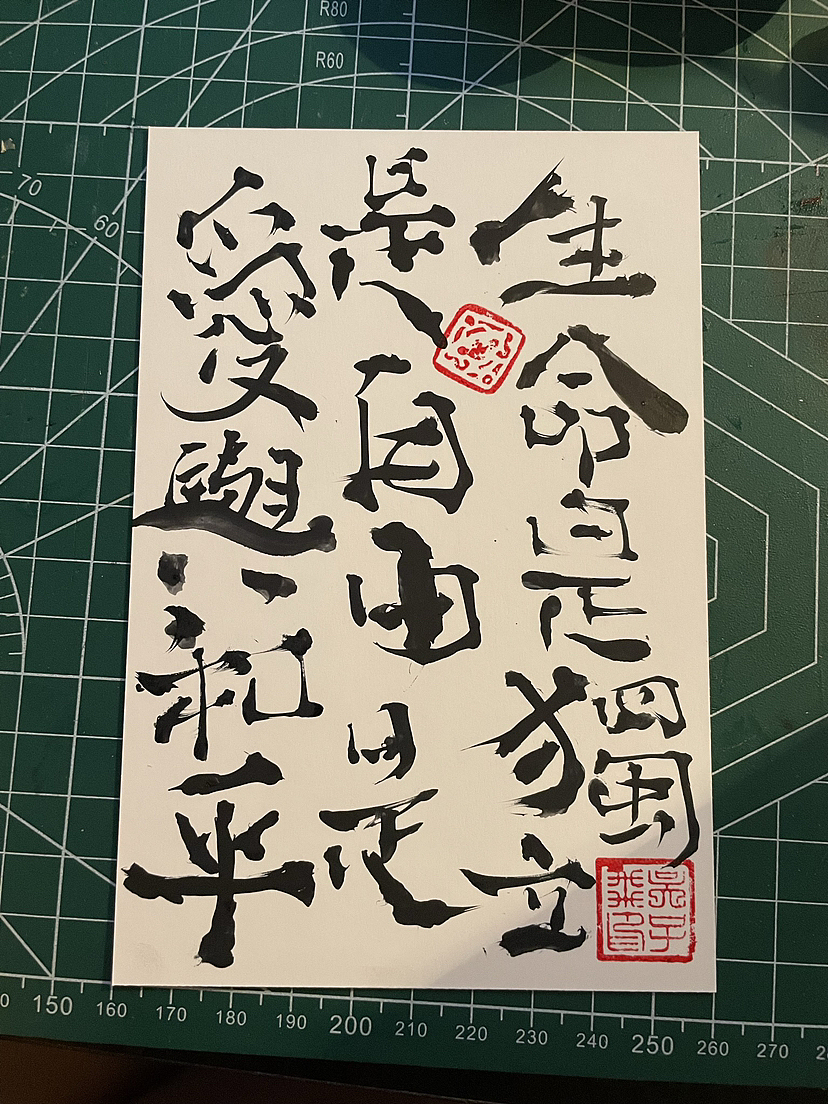 生命是獨立
是自由是
愛與和平
R80
R60
70
60
150 160 170 180 190 200 210 220 230 240 250 260 270